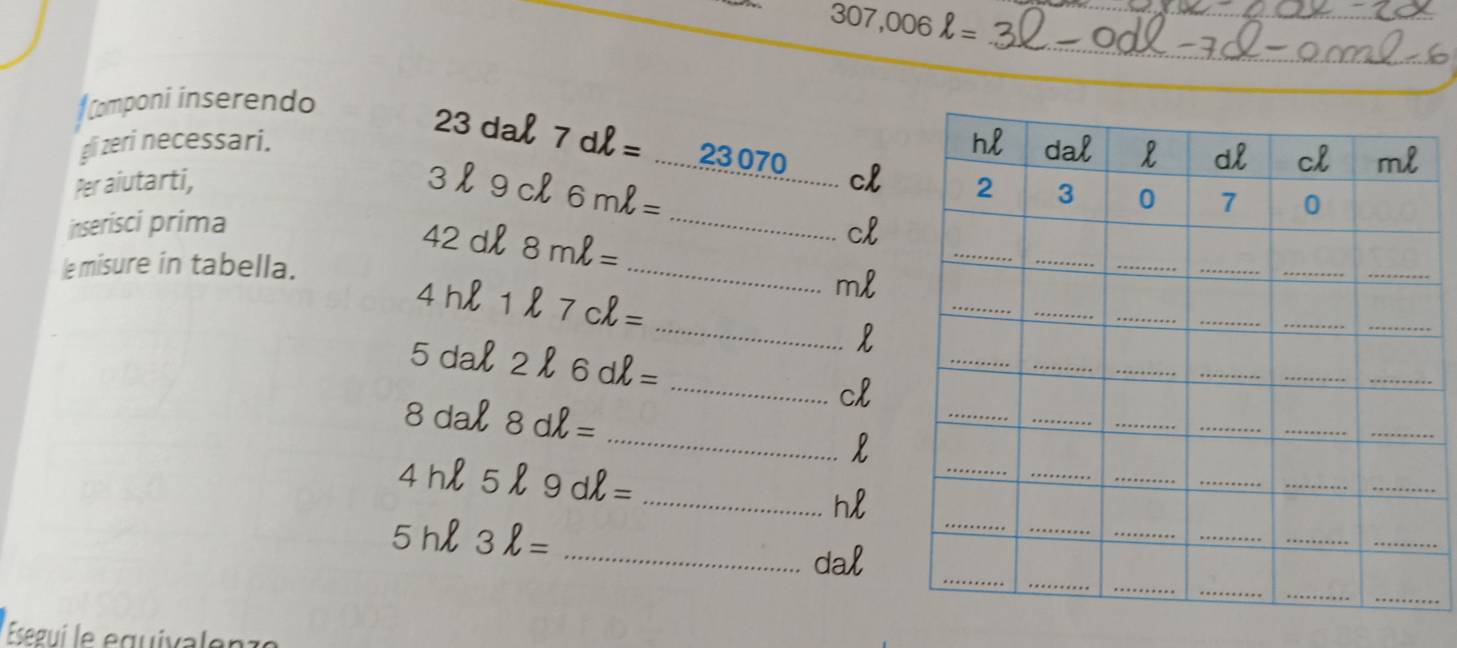 307,006 ℓ = 3ℓ - 0dℓ - 7cℓ - 0mℓ - 6
Componi inserendo
gli zeri necessari.
Per aiutarti,
inserisci prima
le misure in tabella.
23 daℓ 7 dℓ = 23070 cℓ
3 ℓ 9 cℓ 6 mℓ = cℓ
42 dℓ 8 mℓ = mℓ
4 hℓ 1 ℓ 7 cℓ = ℓ
5 daℓ 2 ℓ 6 dℓ = cℓ
8 daℓ 8 dℓ = ℓ
4 hℓ 5 ℓ 9 dℓ = hℓ
5 hℓ 3 ℓ = daℓ
hℓ daℓ ℓ dℓ cℓ mℓ
2 3 0 7 0
Esegui le equivalenze